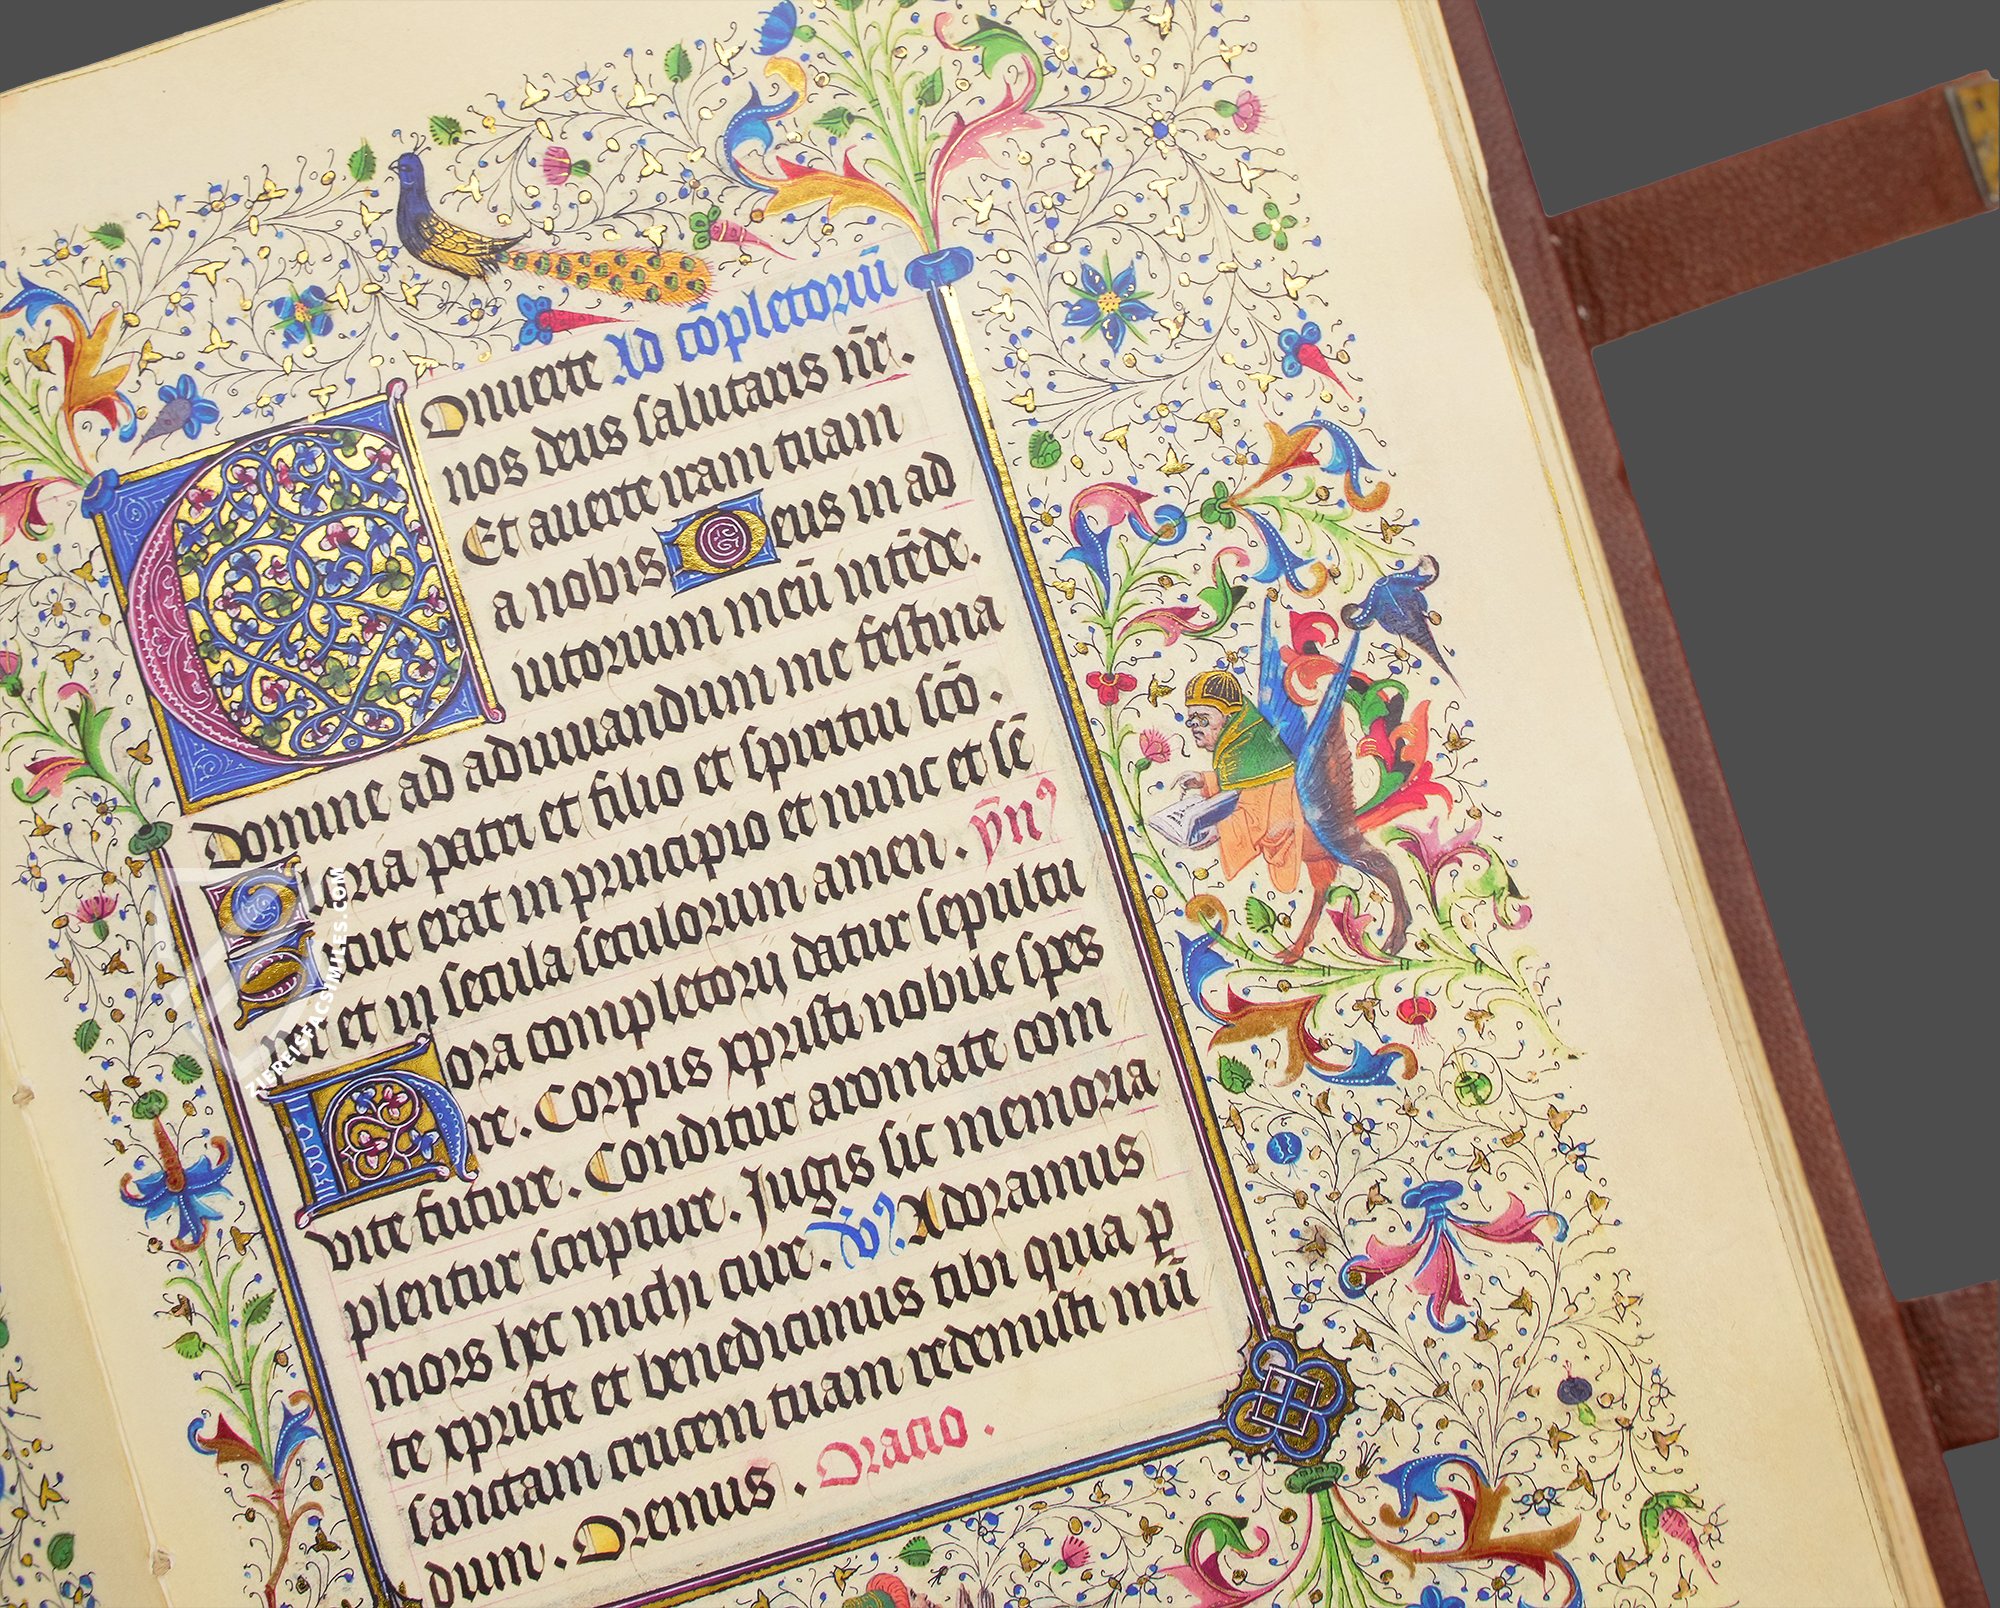 Ad cōpletoriū
Conuerte
nos deus salutaris nr̄.
Et auerte iram tuam
a nobis Deus in ad
iutorium meū intēde.
Domine ad adiuuandum me festina
Gloria patri et filio et spiritui scō.
Sicut erat in principio et nunc et sē
per et in secula seculorum amen. ẏn᷒
Hora completorij datur sepultu
re. Corpus xpristi nobile spes
vite future. Conditur aromate com
plentur scripture. Jugis sic memoria
mors hec michi cure. V᷒. Adoramus
te xpriste et benedicimus tibi quia p̲
sanctam crucem tuam redemisti mū
dum. Oremus. Oracio.
ZIEREISFACSIMILES.COM